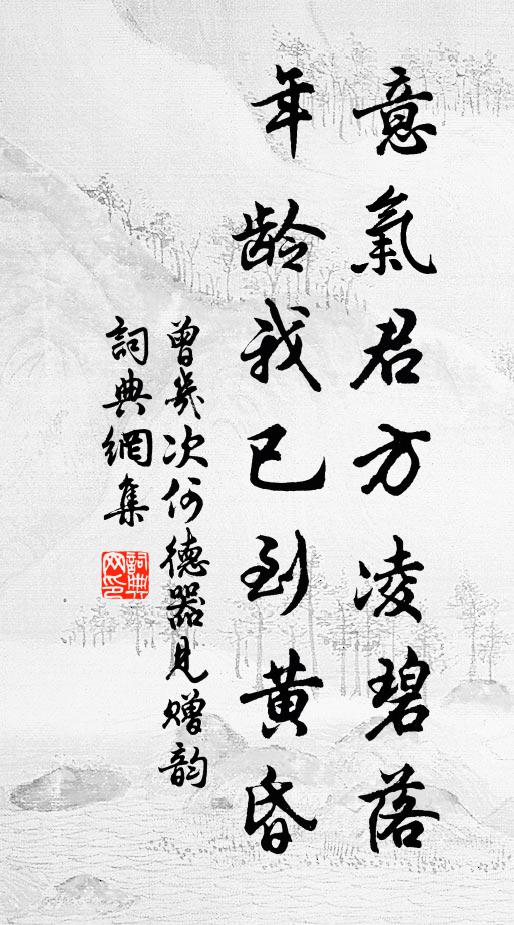 意氣君方凌碧落
年龄我已到黄昏
曾幾次何德器見贈韵
詞典網集
詞典網印